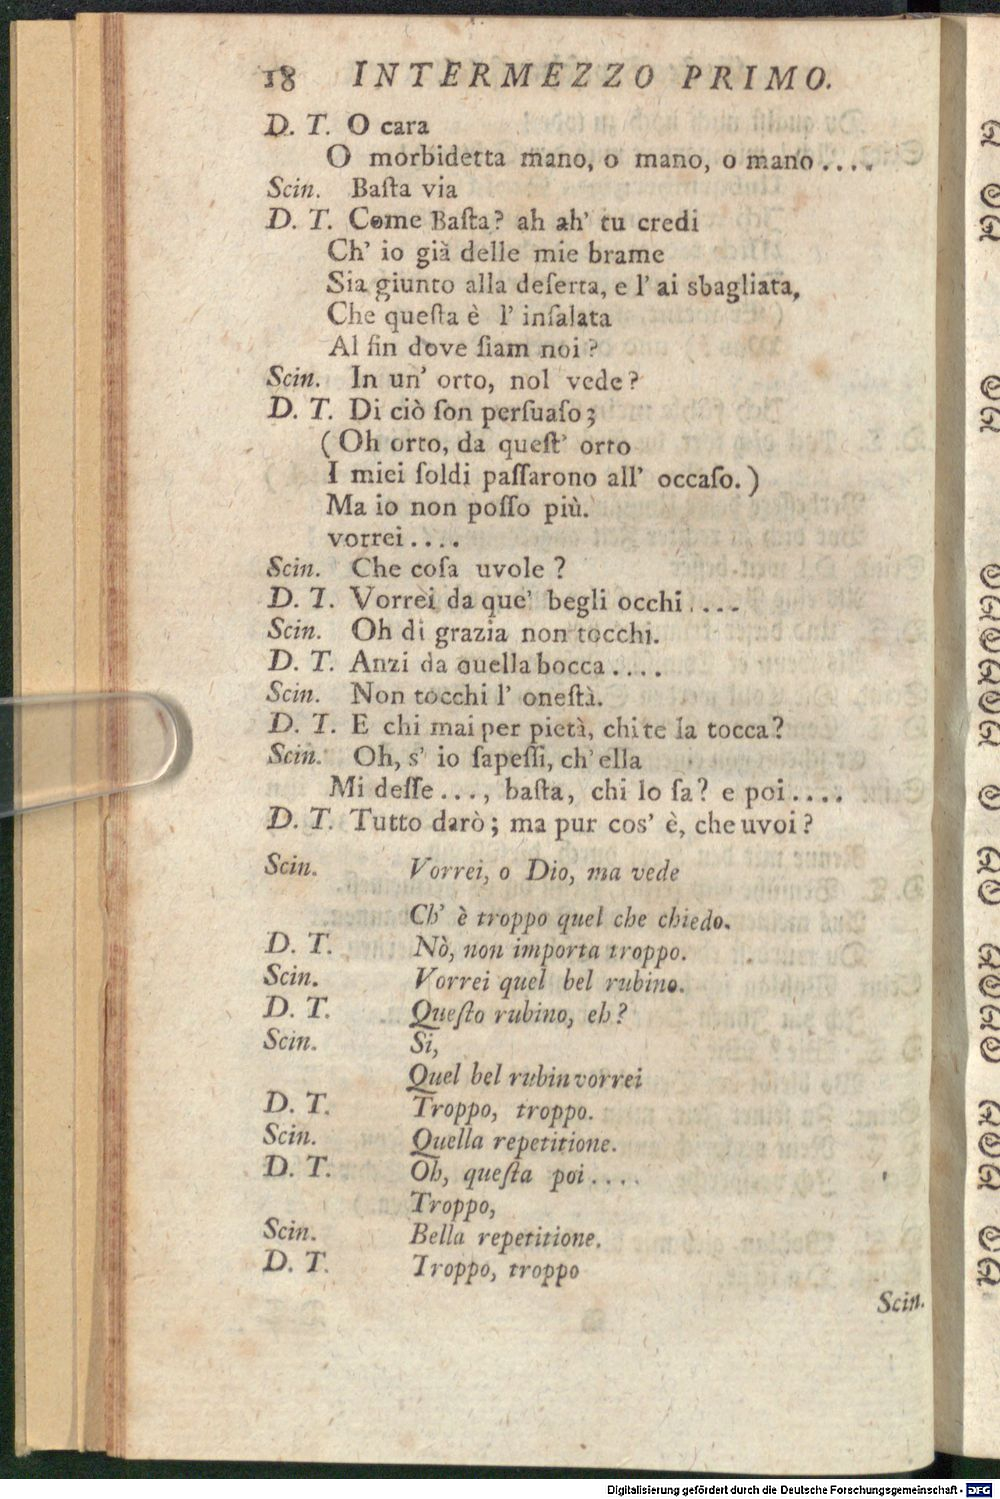 18 INTERMEZZO PRIMO.
D. T. O cara
O morbidetta mano, o mano, o mano....
Scin. Baſta via
D. T. Come Baſta? ah ah' tu credi
Ch' io già delle mie brame
Sia giunto alla deſerta, e l' ai sbagliata,
Che queſta è l' inſalata
Al fin dove ſiam noi?
Scin. In un' orto, nol vede?
D. T. Di ciò ſon perſuaſo;
(Oh orto, da queſt' orto
I miei ſoldi paſſarono all' occaſo.)
Ma io non poſſo più.
vorrei....
Scin. Che coſa uvole?
D. T. Vorrei da que' begli occhi....
Scin. Oh di grazia non tocchi.
D. T. Anzi da quella bocca....
Scin. Non tocchi l' oneſtà.
D. T. E chi mai per pietà, chi te la tocca?
Scin. Oh, s' io ſapeſſi, ch' ella
Mi deſſe..., baſta, chi lo ſa? e poi....
D. T. Tutto darò; ma pur cos' è, che uvoi?
Scin. Vorrei, o Dio, ma vede
Ch' è troppo quel che chiedo.
D. T. Nò, non importa troppo.
Scin. Vorrei quel bel rubino.
D. T. Queſto rubino, eh?
Scin. Si,
Quel bel rubin vorrei
D. T. Troppo, troppo.
Scin. Quella repetitione.
D. T. Oh, queſta poi....
Troppo,
Scin. Bella repetitione.
D. T. Troppo, troppo
Scin.
Digitalisierung gefördert durch die Deutsche Forschungsgemeinschaft - DFG